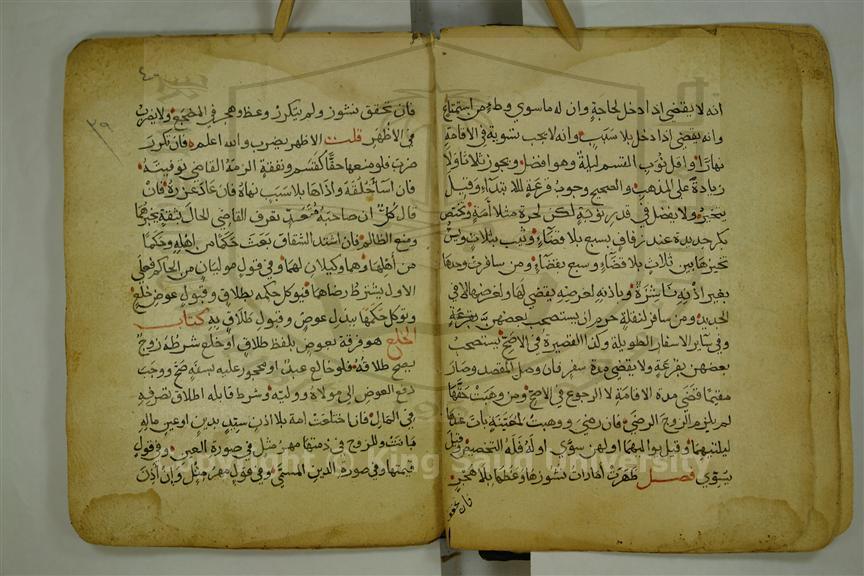 انه لا يقضى اذا دخل لحاجة وان له ماسوي وطء من استمتاع
وانه يقضى اذا دخل بلا سبب وانه لا يجب تسوية في الاقامة
نهارا واقل نوب القسم ليلة وهو افضل ويجوز ثلاثا ولا
زيادة على المذهب والصحيح وجوب قرعة للابتداء وقيل
يتخير ولا يفضل في قدر نوبة لكن لحرة مثلا أمة وتختص
بكر جديدة عند زفاف بسبع بلا قضاء وثيب بثلاث ويسن
تخييرها بين ثلاث بلا قضاء وسبع بقضاء ومن سافرت وحدها
بغير اذنه ناشزة وباذنه لغرضه يقضي لها ولغرضها لا في
الجديد ومن سافر لنقلة حرم ان يستصحب بعضهن بقرعة
وفي ساير الاسفار الطويلة وكذا القصيرة في الاصح يستصحب
بعضهن بقرعة ولا يقضي مدة سفر فان وصل المقصد وصار
مقيما قضى مدة الاقامة لا الرجوع في الاصح ومن وهبت حقها
لم يلزم الزوج الرضى فان رضي ووهبت لمعينة بات عندها
ليلتيهما وقيل يواليهما او لهن سوي او له فله التخصيص وقيل
يسوي فصل ظهرت أمارات نشوزها وعظها بلا هجر
فان تحقق
فان تحقق نشوز ولم يتكرر وعظ وهجر في المضجع ولا يضرب
في الاظهر قلت الاظهر يضرب والله اعلم فان تكرر
ضرب فلو منعها حقا كقسم ونفقة الزمه القاضي توفيته
فان اسأ خلقه واذاها بلا سبب نهاه فان عاد عزره فان
قال كل ان صاحبه متعد تعرف القاضي الحال بثقة يخبرهما
ومنع الظالم فان اشتد الشقاق بعث حكما من اهله وحكما
من أهلها وهما وكيلان لهما وفي قول موليان من الحاكم فعلى
الاول يشترط رضاهما فيوكل حكمه بطلاق وقبول عوض خلع
وتوكل حكمها ببذل عوض وقبول طلاق به كتاب
الخلع هو فرقة بعوض بلفظ طلاق او خلع شرطه زوج
يصح طلاقه فلو خالع عبد او محجور عليه بسفه صح ووجب
دفع العوض الى مولاه ووليه وشرط قابله اطلاق تصرفه
في المال فان اختلعت امة بلا اذن سيد بدين او عين ماله
بانت وللزوج في ذمتها مهر مثل في صورة العين وفي قول
قيمتها وفي صورة الدين المسمى وفي قول مهر مثل وإن أذن
٣٩
Copyright © King Saud University